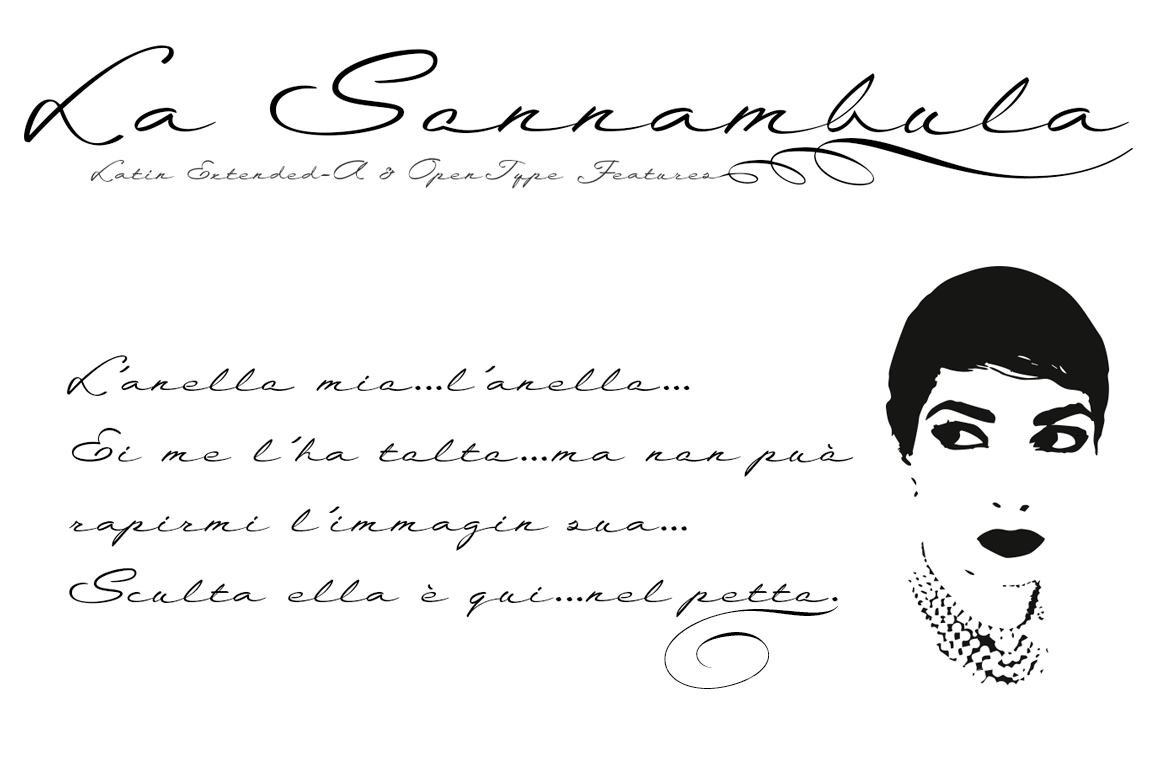 La Sonnambula
Latin Extended-A & OpenType Features
L'anello mio...l'anello...
Ei me l'ha tolto...ma non può
rapirmi l'immagin sua...
Sculta ella è qui...nel petto.